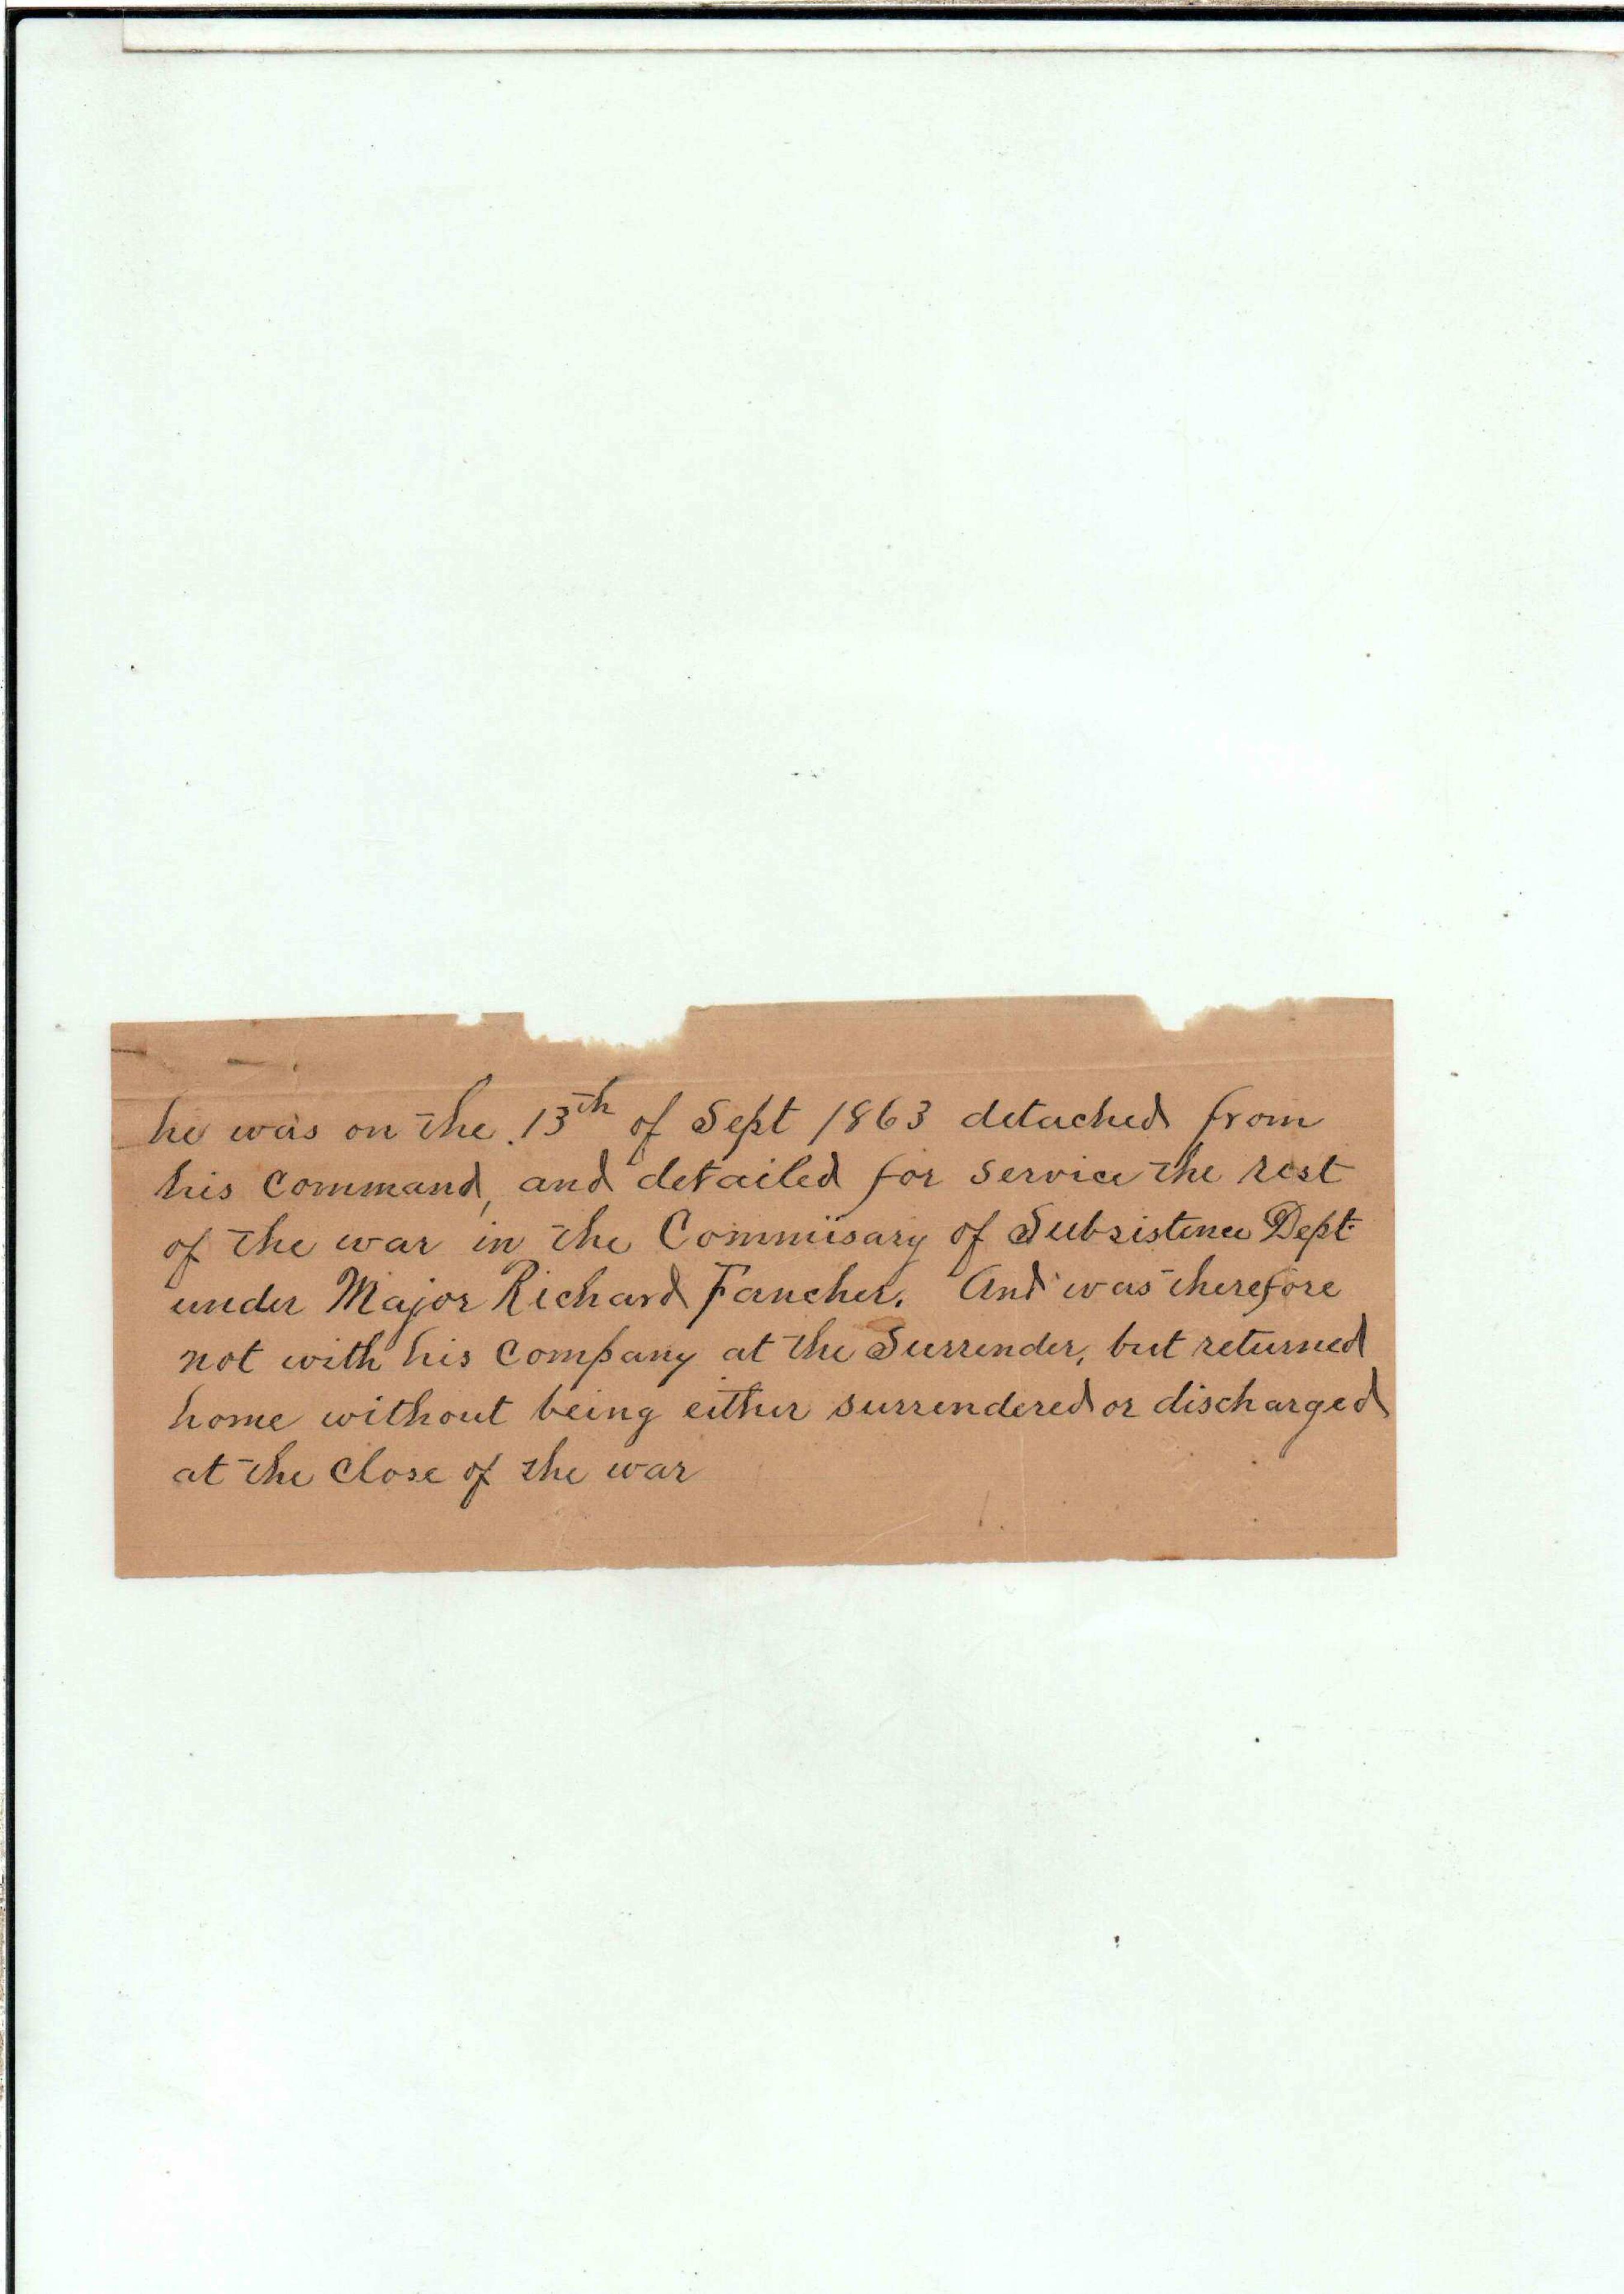 he was on the 13th of Sept 1863 detached from
his Command, and detailed for service the rest
of the war in the Commisary of Subsistence Dept.
under Major Richard Fancher. And was therefore
not with his Company at the Surrender, but returned
home without being either surrendered or discharged
at the Close of the war